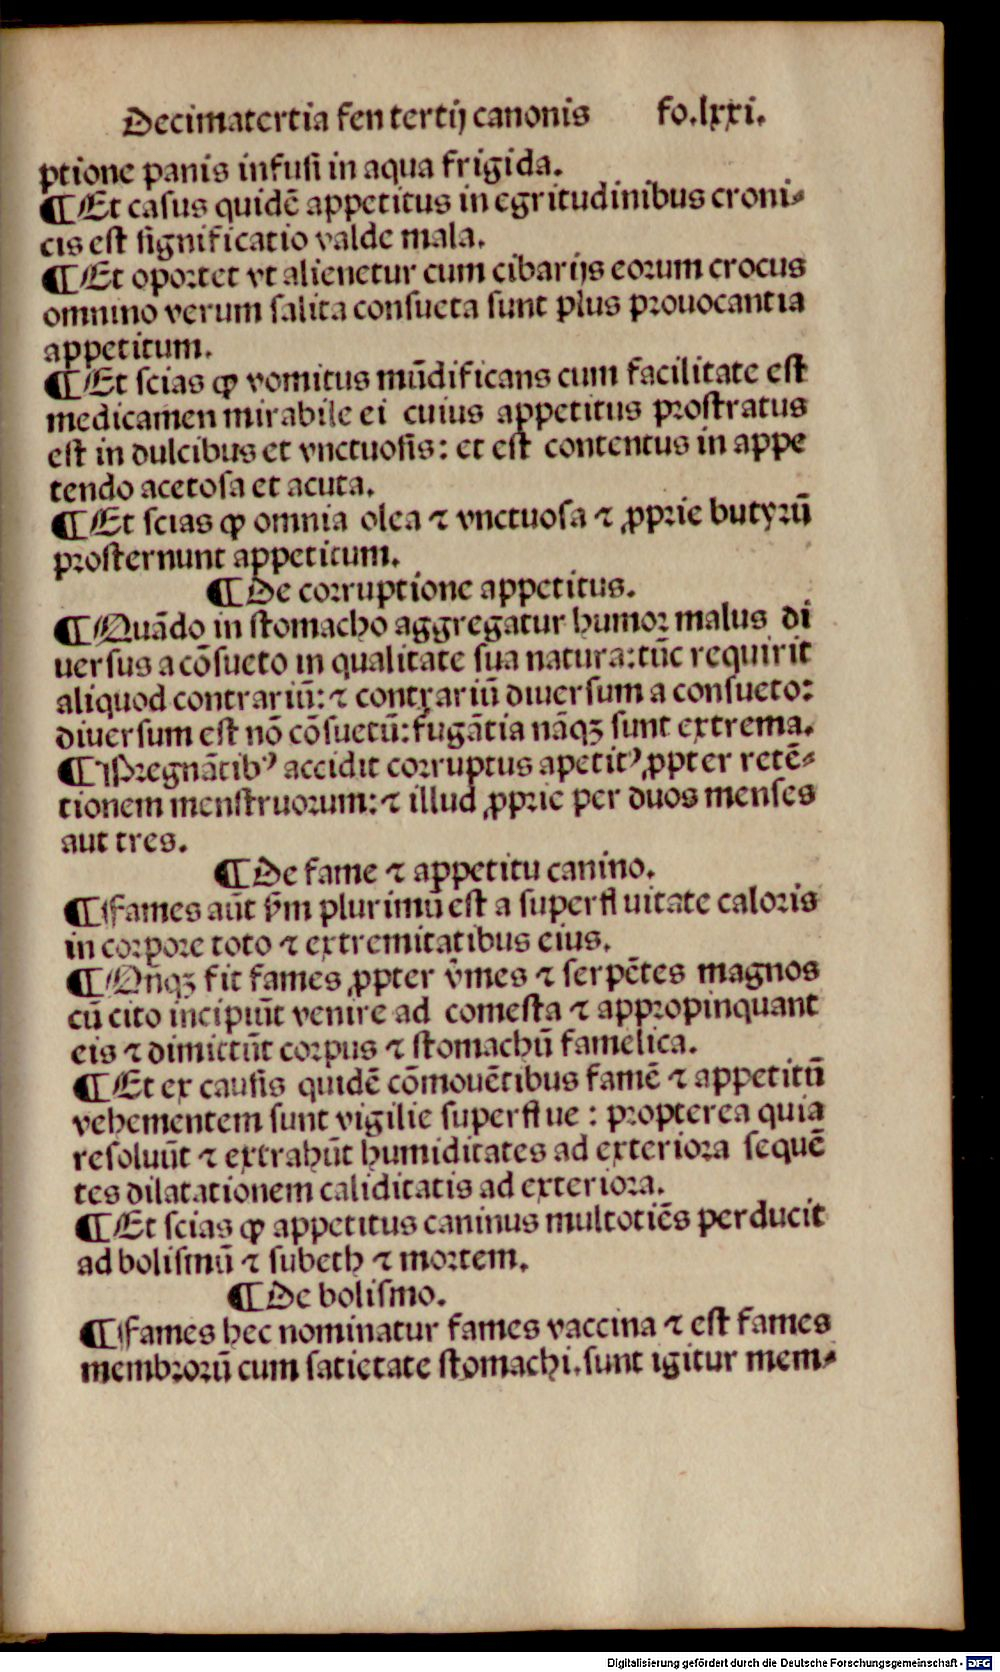 Decimatertia fen tertij canonis fo.lxxi.
ptione panis infusi in aqua frigida.
¶Et casus quidē appetitus in egritudinibus croni⸗
cis est significatio valde mala.
¶Et oportet vt alienetur cum cibarijs eorum crocus
omnino verum salita consueta sunt plus prouocantia
appetitum.
¶Et scias ꝙ vomitus mūdificans cum facilitate est
medicamen mirabile ei cuius appetitus prostratus
est in dulcibus et vnctuosis: et est contentus in appe
tendo acetosa et acuta.
¶Et scias ꝙ omnia olea ⁊ vnctuosa ⁊ ꝓprie butyrū
prosternunt appetitum.
¶De corruptione appetitus.
¶Quādo in stomacho aggregatur humor malus di
uersus a cōsueto in qualitate sua natura: tūc requirit
aliquod contrariū: ⁊ contrariū diuersum a consueto:
diuersum est nō cōsuetū: fugātia nāqꝫ sunt extrema.
¶Pregnātibꝰ accidit corruptus apetitꝰ ꝓpter retē⸗
tionem menstruorum: ⁊ illud ꝓprie per duos menses
aut tres.
¶De fame ⁊ appetitu canino.
¶Fames aūt ẜm plurimū est a superfluitate caloris
in corpore toto ⁊ extremitatibus eius.
¶Qn̄qꝫ fit fames ꝓpter v̄mes ⁊ serpētes magnos
cū cito incipiūt venire ad comesta ⁊ appropinquant
eis ⁊ dimittūt corpus ⁊ stomachū famelica.
¶Et ex causis quidē cōmouētibus famē ⁊ appetitū
vehementem sunt vigilie superflue: propterea quia
resoluūt ⁊ extrahūt humiditates ad exteriora sequē
tes dilatationem caliditatis ad exteriora.
¶Et scias ꝙ appetitus caninus multotiēs perducit
ad bolismū ⁊ subeth ⁊ mortem.
¶De bolismo.
¶Fames hec nominatur fames vaccina ⁊ est fames
membrorū cum satietate stomachi. sunt igitur mem⸗
Digitalisierung gefördert durch die Deutsche Forschungsgemeinschaft - DFG